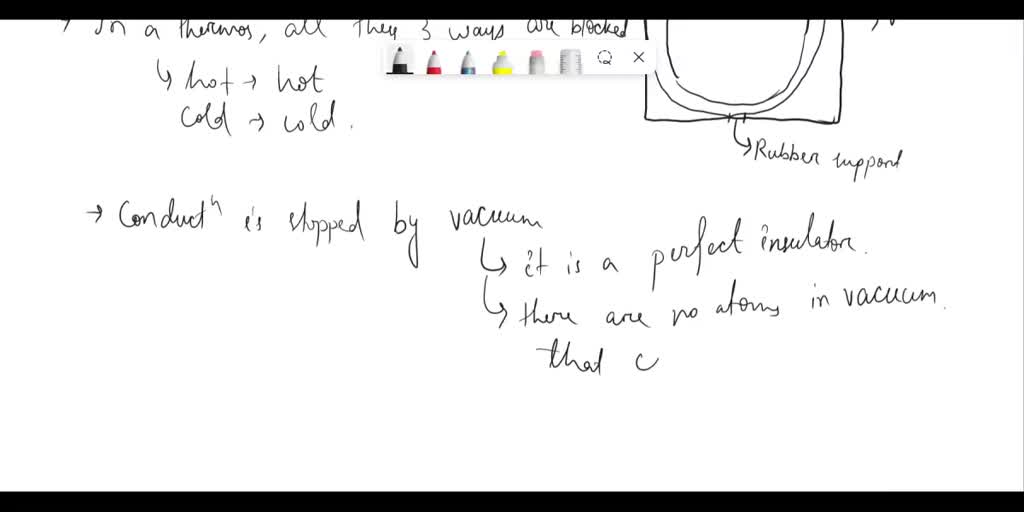 → In a thermos, all they 3 ways are blocked
↳ hot → hot
cold → cold.
↳ Rubber support
→ Conductⁿ is stopped by vacuum
↳ it is a perfect insulator.
↳ there are no atoms in vacuum.
that c